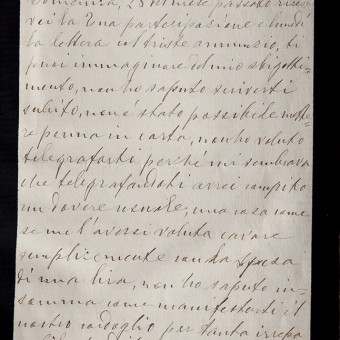 Domenica, 28 del mese passato rice=
vei la Tua partecipazione e lunedì
la lettera col triste annunzio, ti
puoi immaginare del mio sbigotti=
mento, non ho saputo scriverti
subito, non è stato possibile mette=
re penna in carta, non ho voluto
telegrafarti perché mi sembrava
che telegrafandoti avrei compito
un dovere usuale, una cosa come
se me l'avessi voluta cavare
semplicemente con la spesa
di una lira, non ho saputo in=
somma come manifestarti il
nostro cordoglio per tanta irrepa